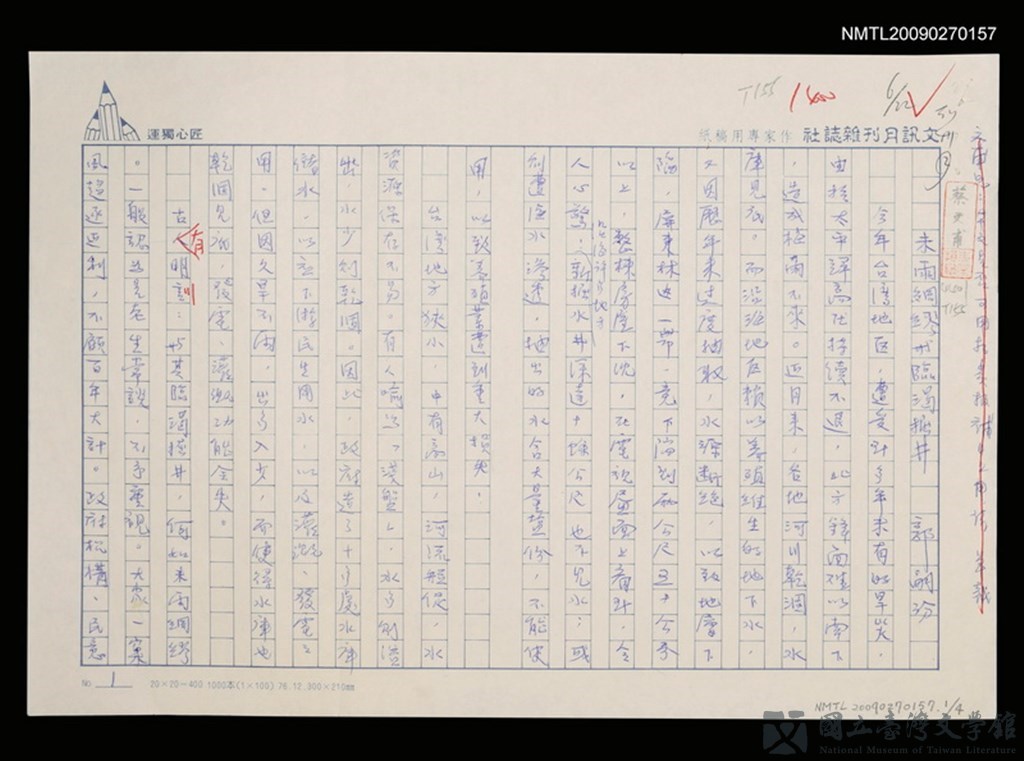 NMTL20090270157
6/22
T155
文訊月刊雜誌社 作家專用稿紙
匠心獨運
未雨綢繆與臨渴掘井 郭嗣汾
今年台灣地區,遭受到多年未有的旱災。
由於太平洋高壓持續不退,北方鋒面難以南下
,造成梅雨不來。近月來,各地河川乾涸,水
庫見底。而沿海地區賴以養殖維生的地下水,
又因歷年來過度抽取,水源斷絕,以致地層下
陷,屏東林邊一帶,竟下陷到兩公尺五十公分
以上,整棟房屋下沈,在電視屏面上看到,令
人心驚,新掘水井深達十幾公尺也不見水;或
則遭海水滲透,抽出的水含大量鹽份,不能使
用,以致養殖業遭到重大損失。
台灣地方狹小,中有高山,河流短促,水
資源保存不易。有人喻為「淺盤」,水多則溢
出,水少則乾涸。因此,政府造了十多處水庫
儲水,以應下游民生用水,以及灌溉、發電之
用。但因久旱不雨,出多入少,而使得水庫也
乾涸見底,發電、灌溉功能全失。
古有明訓:與其臨渴掘井,何如未雨綢繆
。一般認為是老生常談,不予重視。大家一窩
風超近利,不顧百年大計。政府松橫、民意
No 1
20×20=400 1000本(1×100) 76.12.300×210mm
NMTL 20090270157. 1/4
國立臺灣文學館
National Museum of Taiwan Literature